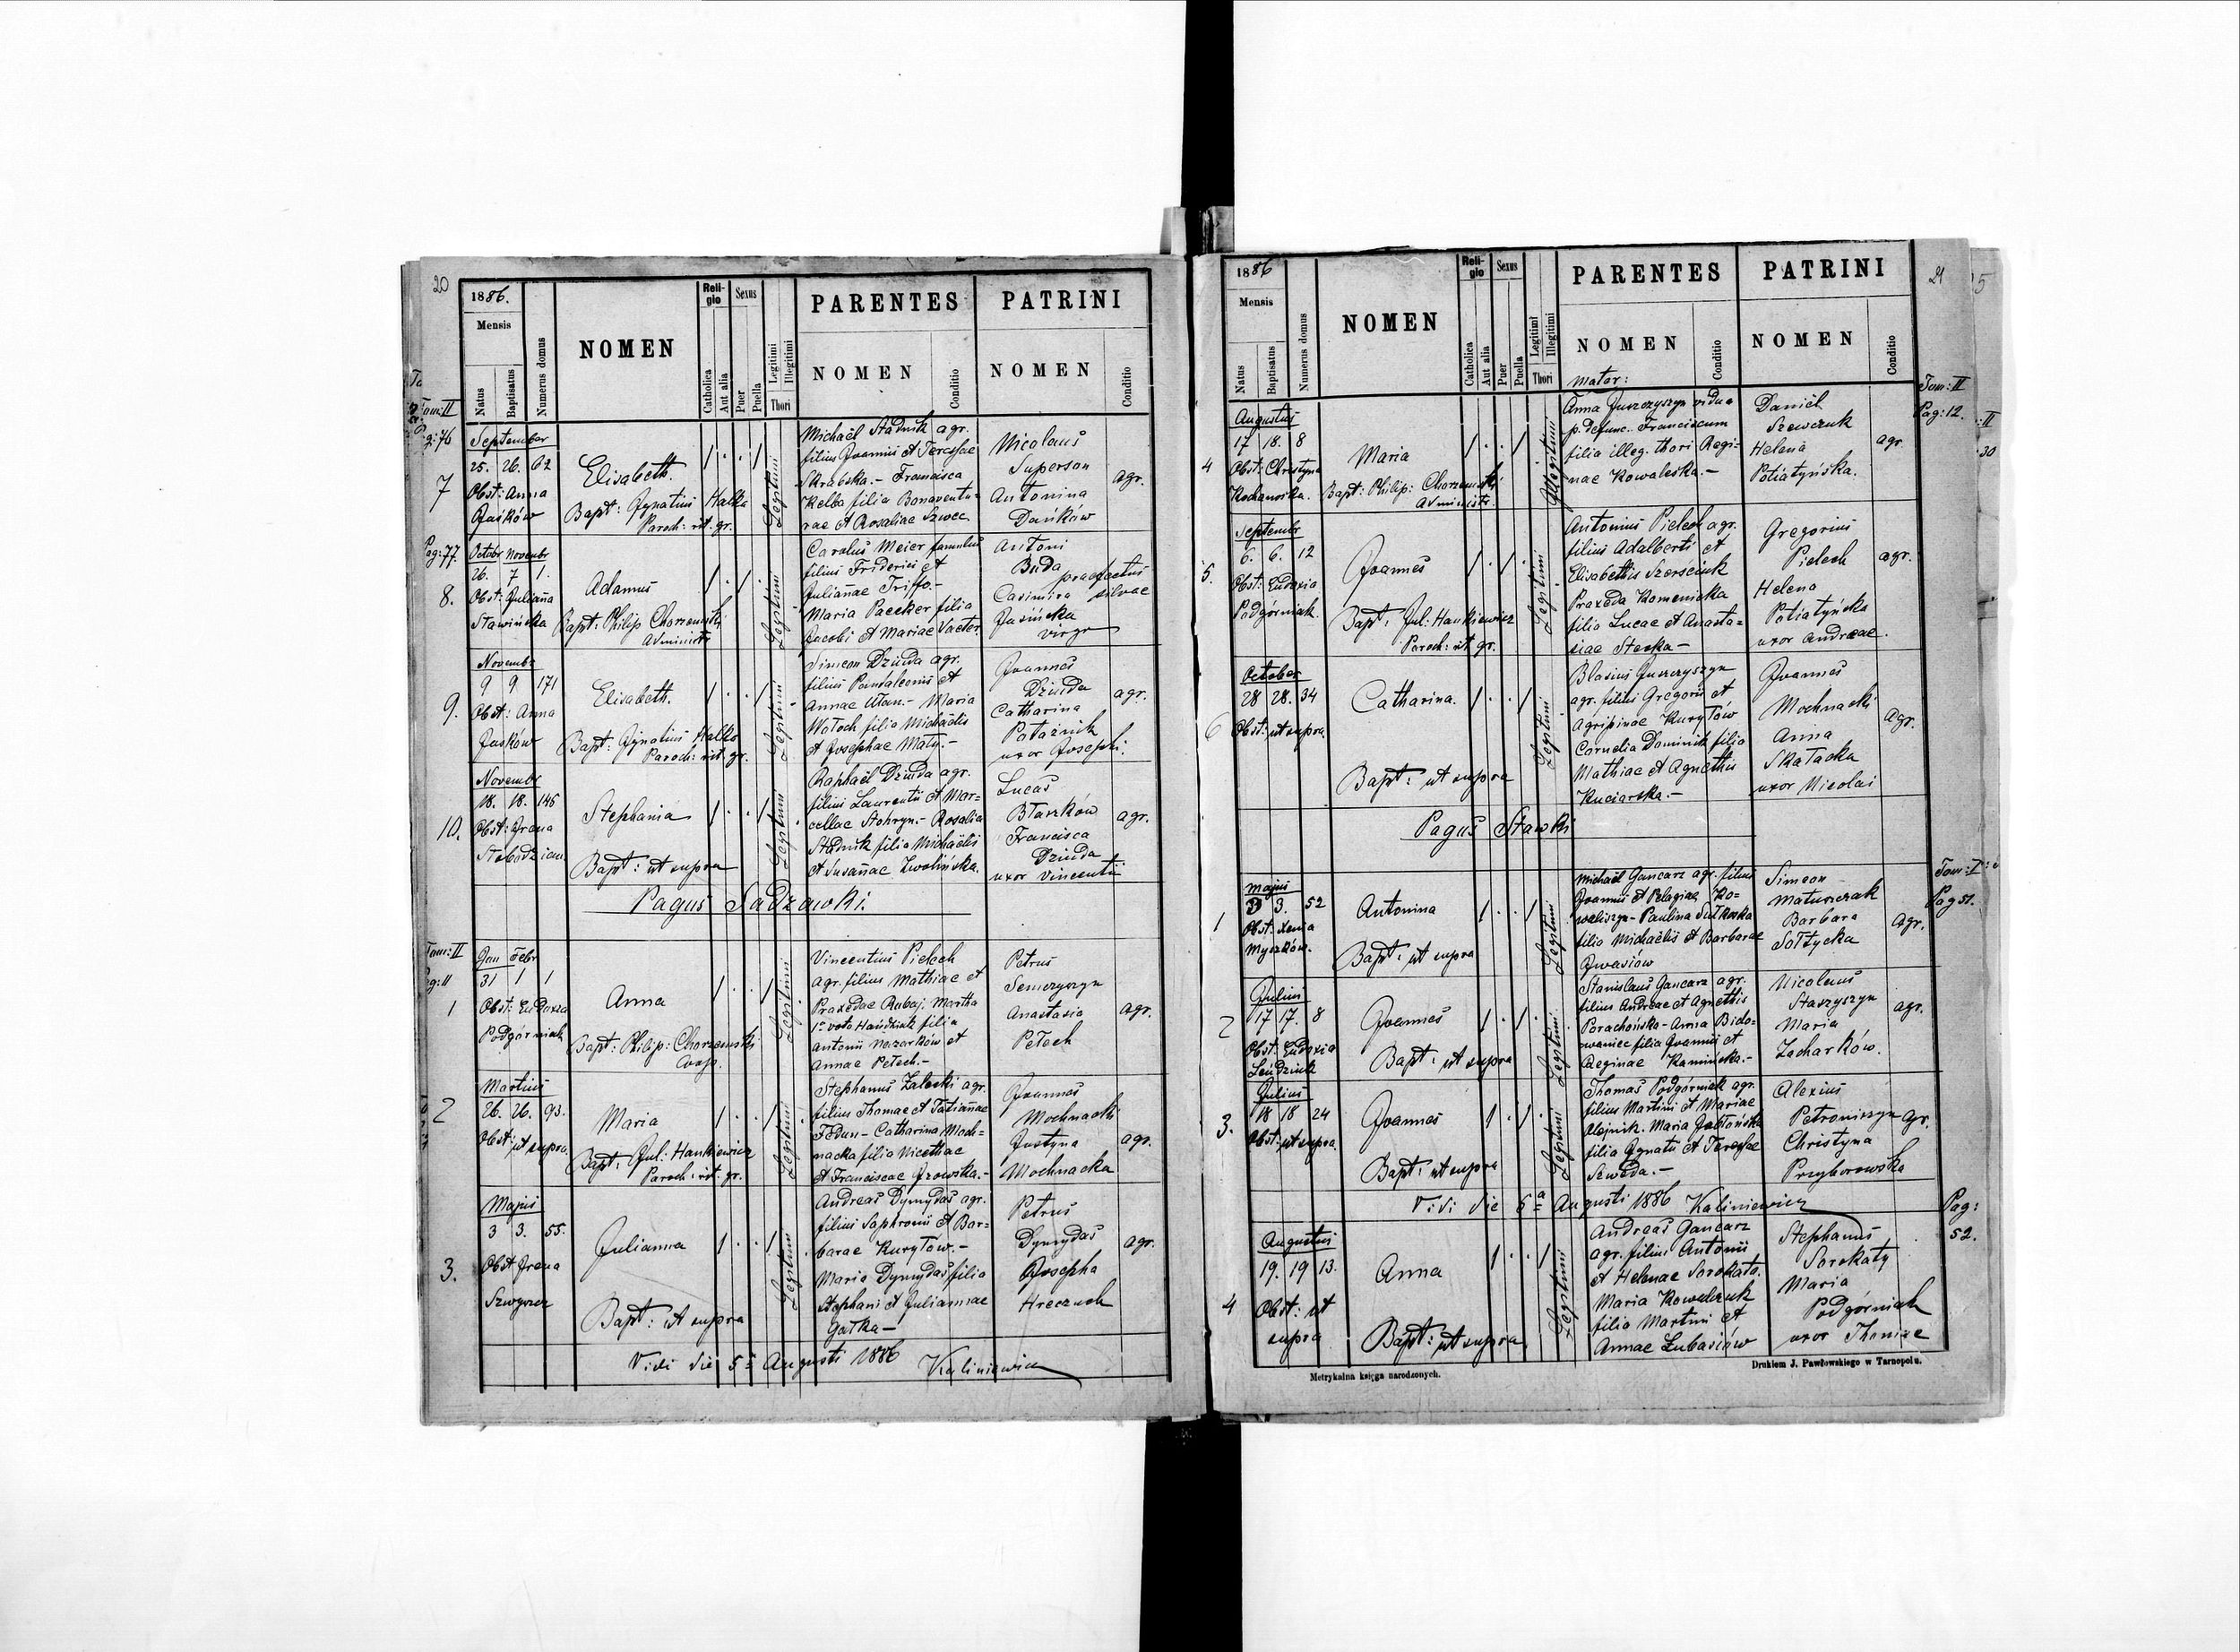 20
1886.
Mensis
Natus
Baptisatus
Numerus domus
NOMEN
Reli-
gio
Catholica
Aut alia
Sexus
Puer
Puella
Legitimi
Illegitimi
Thori
PARENTES
NOMEN
Conditio
PATRINI
NOMEN
Conditio
Tom: II
76
7
September
25. 26. 62
Obst: Anna
Jaśków
Elisabeth
Bapt: Ignatius Halka
Paroch: rit. gr.
Legitimi
Michaël Stadnik agr.
filius Joannis et Teresiae
Skrabska. - Francisca
Kelba filia Bonaventu-
rae et Rosaliae Szwec
Nicolaus
Superson
Antonina
Dańków
agr.
Pag: 77.
8.
Octobr Novembr
26. 7 1.
Obst: Julianna
Stawińska
Adamus
Bapt: Philip: Chorzemski
Administr
Legitimi
Carolus Meier famulus
filius Friderici et
Juliannae Triffo-
Maria Paecker filia
Jacobi et Mariae Vaeter
Antoni
Buda
praefectus
silvae
Casimira
Jasińska
virgo
9.
Novembr
9 9 171
Obst: Anna
Jaśków
Elisabeth.
Bapt: Ignatius Halka
Paroch: rit. gr.
Legitimi
Simeon Dziuda agr.
filius Pantaleonis et
Annae Ułan. - Maria
Wołoch filia Michaëlis
et Josephae Mały. -
Joannes
Dziuda
Catharina
Potaźnik
uxor Josephi.
agr.
10.
Novembr
18. 18. 146
Obst: Irena
Słobodzian
Stephania
Bapt: ut supra
Legitimi
Raphaël Dziuda agr.
filius Laurentii et Mar-
cellae Stohryn. - Rosalia
Stadnik filia Michaëlis
et Susannae Zwolińska.
Lucas
Błaszków
Francisca
Dziuda
uxor Vincentii
agr.
Pagus Sadzawki.
Tom: II
Pag: 11
1
Jan Febr
31 1 1
Obst: Eudoxia
Podgórniak
Anna
Bapt: Philip: Chorzemski
Coop.
Legitimi
Vincentius Pielech
agr. filius Mathiae et
Praxedae Rubaj. Martha
1º voto Hańdziak filia
Antonii Nazarków et
Annae Petech. -
Petrus
Semczyszyn
Anastasia
Petech
agr.
2
Martius
26. 26. 93.
Obst: ut supra.
Maria
Bapt: Jul: Hankiewicz
Paroch: rit. gr.
Legitimi
Stephanus Zaleski agr.
filius Thomae et Tatiannae
Fedun - Catharina Moch-
nacka filia Nicethae
et Franciscae Gzowska. -
Joannes
Mochnacki
Justyna
Mochnacka
agr.
3.
Majus
3 3. 55.
Obst Irena
Julianna
Bapt: ut supra
Legitimi
Andreas Dymydas agr.
filius Saphronii et Bar-
barae Kuryłow. -
Maria Dymydas filia
Stephani et Juliannae
Gałka -
Petrus
Dymydas
Josepha
Hreczuch
agr.
Vidi die 5ª Augusti 1886 Kaliniewicz
21
1886
Mensis
Natus
Baptisatus
Numerus domus
NOMEN
Reli-
gio
Catholica
Aut alia
Sexus
Puer
Puella
Legitimi
Illegitimi
Thori
PARENTES
NOMEN
Conditio
PATRINI
NOMEN
Conditio
Tom: II
Pag: 12.
4
Augustus
17 18. 8
Obst: Christyna
Kochanowska.
Maria
Bapt: Philip: Chorzemski
Administr.
Illegitimi
Mater:
Anna Juszczyszyn vidua
p. defunc. Franciscum
filia illeg. thori Regi-
nae Kowalska. -
Daniel
Szewczuk
Helena
Potiatyńska.
agr.
5.
Septembr
6. 6. 12
Obst: Eudoxia
Podgórniak.
Joannes
Bapt: Jul: Hankiewicz
Paroch: rit gr.
Legitimi
Antonius Pielech agr.
filius Adalberti et
Elisabethis Szersciuk
Praxeda Komenicka
filia Lucae et Anasta-
siae Stecka -
Gregorius
Pielech
Helena
Potiatyńska
uxor Andreae.
agr.
6
October
28 28. 34
Obst: ut supra
Catharina.
Bapt: ut supra
Legitimi
Blasius Juszczyszyn
agr. filius Gregorii et
Agripinae Kuryłów
Cornelia Dominik filia
Mathiae et Agnethis
Kuciarska. -
Joannes
Mochnacki
Anna
Skałacka
uxor Nicolai
agr.
Pagus Stawki
Tom: I
Pag 51.
1
Majus
3 3. 52
Obst: Xenia
Myszków.
Antonina
Bapt: ut supra
Legitimi
Michaël Gancarz agr. filius
Joannis et Pelagiae Ko-
waliszyn - Paulina Sutkowska
filia Michaëlis et Barbarae
Iwasiów
Simeon
Matuszczak
Barbara
Sołtycka
agr.
2
Julius
17 17. 8
Obst: Eudoxia
Sendziuk
Joannes
Bapt: ut supra
Legitimi
Stanislaus Gancarz agr.
filius Andreae et Agnethis
Porachońska - Anna Bido-
waniec filia Joannis et
Reginae Kamińska. -
Nicolaus
Staszyszyn
Maria
Zacharków.
agr.
3.
Julius
18 18 24
Obst: ut supra.
Joannes
Bapt: ut supra
Legitimi
Thomas Podgórniak agr.
filius Martini et Mariae
Olejnik. Maria Jabłońska
filia Ignatii et Teresiae
Szweda. -
Alexius
Petroniszyn
Christyna
Przyborowska
agr.
Vidi die 5ª Augusti 1886 Kaliniewicz
Pag:
52.
4
Augustus
19. 19 13.
Obst: ut
supra
Anna
Bapt: ut supra
Legitimi
Andreas Gancarz
agr. filius Antonii
et Helenae Sorokata.
Maria Kowalczuk
filia Martini et
Annae Łubasiów
Stephanus
Sorokaty
Maria
Podgórniak
uxor Thomae
Metrykalna księga narodzonych.
Drukiem J. Pawłowskiego w Tarnopolu.